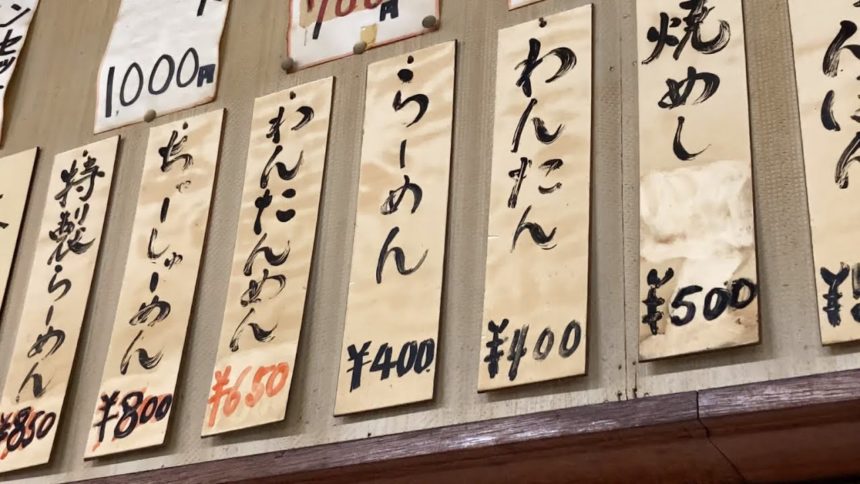 1000円
700円
焼めし
¥500
わんたん
¥400
らーめん
¥400
わんたんめん
¥650
ちゃーしゅーめん
¥800
特製らーめん
¥850